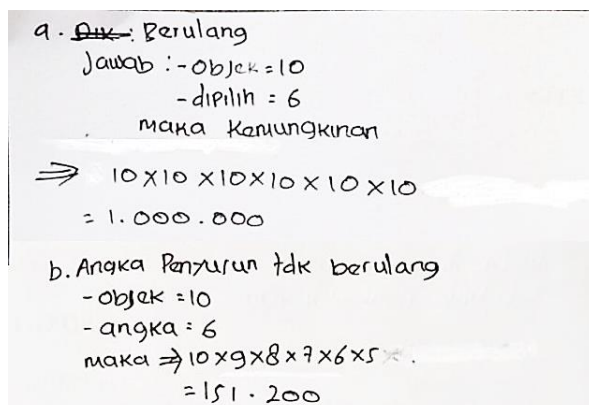 a. Dik : Berulang
Jawab : - Objek = 10
- dipilih = 6
maka Kemungkinan
⇒ 10 × 10 × 10 × 10 × 10 × 10
= 1.000.000
b. Angka Penyusun tdk berulang
- objek = 10
- angka = 6
maka ⇒ 10 × 9 × 8 × 7 × 6 × 5 .
= 151.200